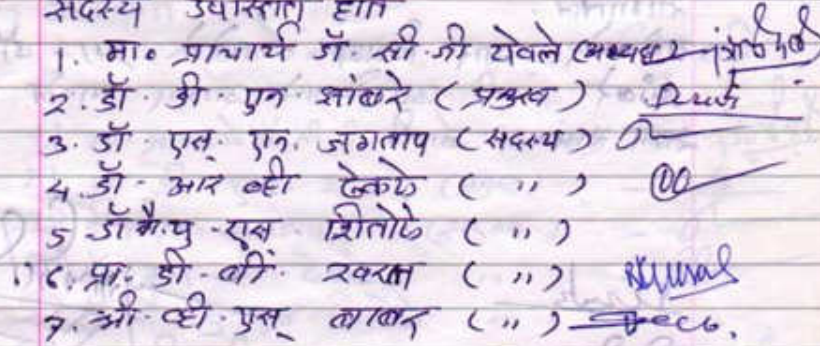 सदस्य उपास्तीत होते
1. मा. प्राचार्य डॉ. सी. जी येवले (अध्यक्ष)
2. डॉ. डी. एन शांबरे (प्रमुख)
3. डॉ. एस. एन. जगताप (सदस्य)
4. डॉ. आर व्ही टेकाळे ( ,, )
5 डॉ. एस शितोळे ( ,, )
6. प्रा. डी. बी. खरात ( ,, )
7. श्री. व्ही. एस् बाबर ( ,, )